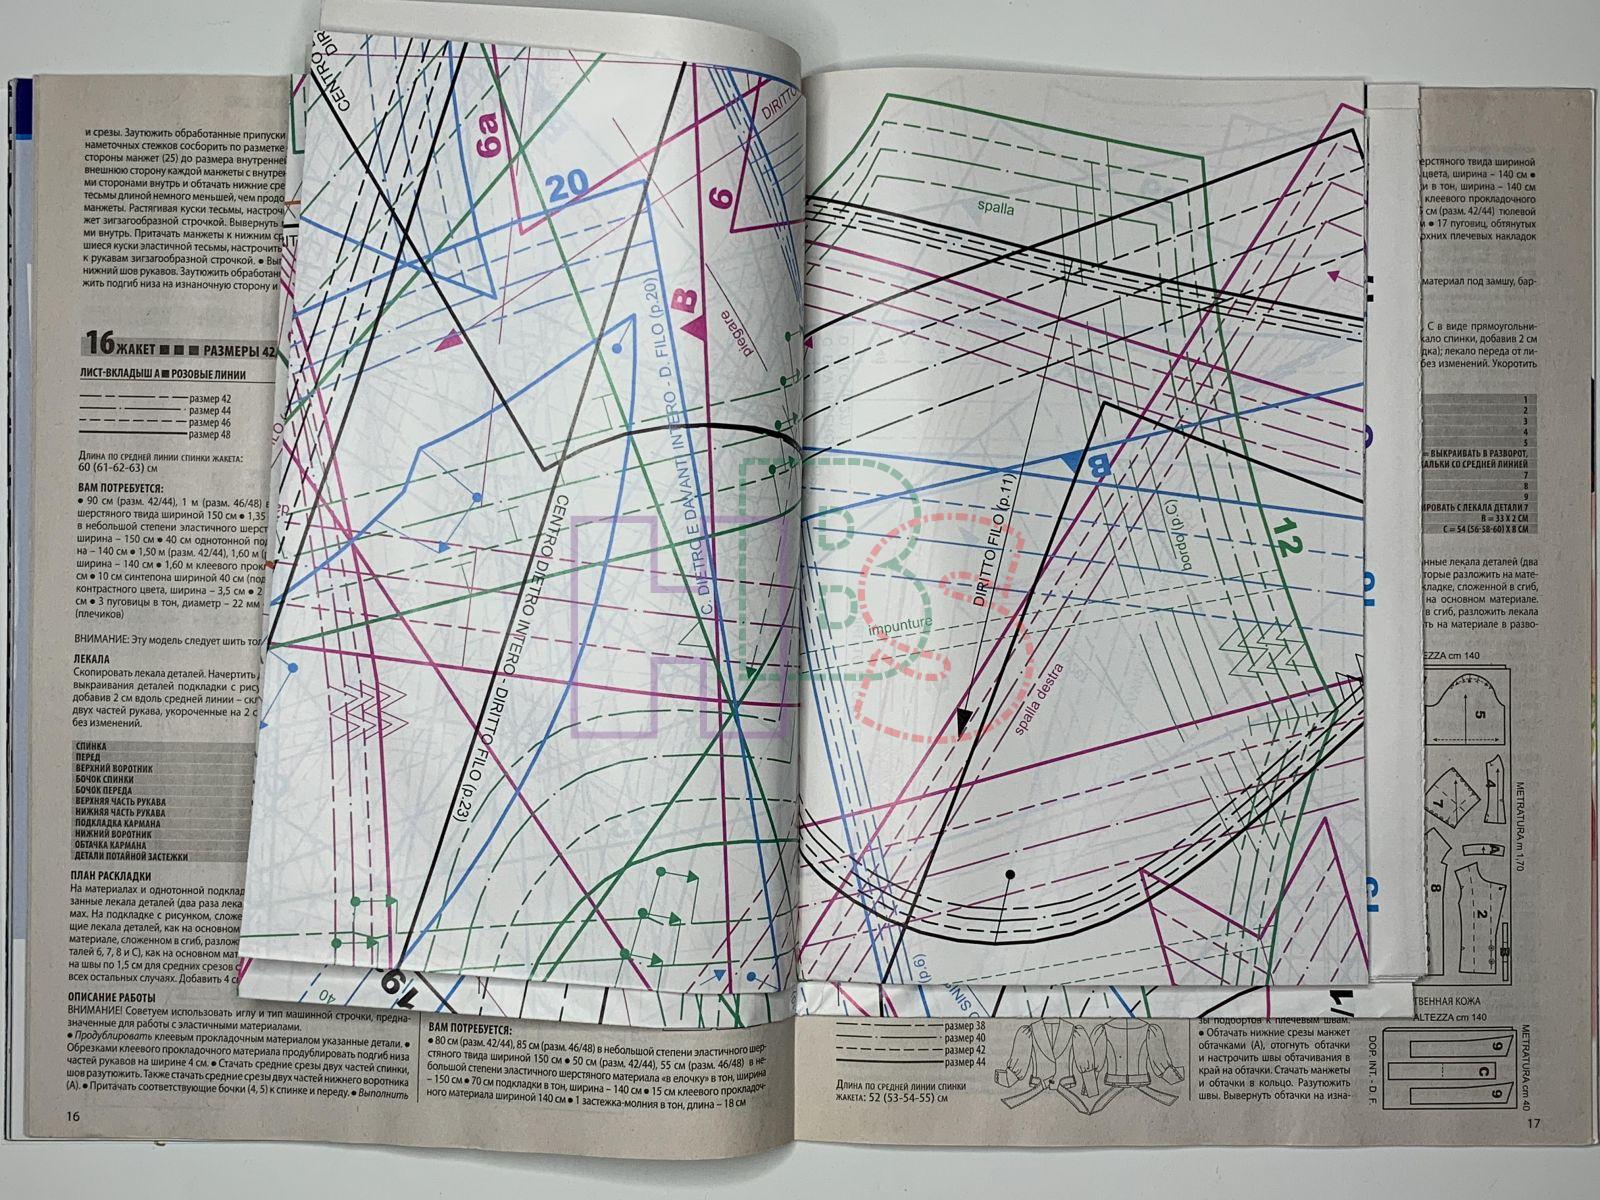 и срезы. Заутюжить обработанные припуски
наметочных стежков сосборить по разметке
стороны манжет (25) до размера внутренней
внешнюю сторону каждой манжеты с внутрен
ми сторонами внутрь и обтачать нижние сре
тесьмы длиной немного меньшей, чем продо
манжеты. Растягивая куски тесьмы, настроч
жет зигзагообразной строчкой. Вывернуть
ми внутрь. Притачать манжеты к нижним ср
шиеся куски эластичной тесьмы, настрочить
к рукавам зигзагообразной строчкой. ● Вы
нижний шов рукавов. Заутюжить обработан
жить подгиб низа на изнаночную сторону и
16 ЖАКЕТ ■ ■ ■ РАЗМЕРЫ 42
ЛИСТ-ВКЛАДЫШ А ■ РОЗОВЫЕ ЛИНИИ
размер 42
размер 44
размер 46
размер 48
Длина по средней линии спинки жакета:
60 (61-62-63) см
ВАМ ПОТРЕБУЕТСЯ:
● 90 см (разм. 42/44), 1 м (разм. 46/48)
шерстяного твида шириной 150 см ● 1,35
в небольшой степени эластичного шерст
ширина – 150 см ● 40 см однотонной по
на – 140 см ● 1,50 м (разм. 42/44), 1,60 м
ширина – 140 см ● 1,60 м клеевого прок
см ● 10 см синтепона шириной 40 см (по
контрастного цвета, ширина – 3,5 см ● 2
см ● 3 пуговицы в тон, диаметр – 22 мм
(плечиков)
ВНИМАНИЕ: Эту модель следует шить то
ЛЕКАЛА
Скопировать лекала деталей. Начертить
выкраивания деталей подкладки с рису
добавив 2 см вдоль средней линии – ск
двух частей рукава, укороченные на 2 с
без изменений.
СПИНКА
ПЕРЕД
ВЕРХНИЙ ВОРОТНИК
БОЧОК СПИНКИ
БОЧОК ПЕРЕДА
ВЕРХНЯЯ ЧАСТЬ РУКАВА
НИЖНЯЯ ЧАСТЬ РУКАВА
ПОДКЛАДКА КАРМАНА
НИЖНИЙ ВОРОТНИК
ОБТАЧКА КАРМАНА
ДЕТАЛИ ПОТАЙНОЙ ЗАСТЕЖКИ
ПЛАН РАСКЛАДКИ
На материалах и однотонной подклад
занные лекала деталей (два раза лека
мах. На подкладке с рисунком, сложе
щие лекала деталей, как на основном
материале, сложенном в сгиб, разлож
талей 6, 7, 8 и С), как на основном мат
на швы по 1,5 см для средних срезов с
всех остальных случаях. Добавить 4 с
ОПИСАНИЕ РАБОТЫ
ВНИМАНИЕ! Советуем использовать иглу и тип машинной строчки, предна-
значенные для работы с эластичными материалами.
● Продублировать клеевым прокладочным материалом указанные детали. ●
Обрезками клеевого прокладочного материала продублировать подгиб низа
частей рукавов на ширине 4 см. ● Стачать средние срезы двух частей спинки,
шов разутюжить. Также стачать средние срезы двух частей нижнего воротника
(А). ● Притачать соответствующие бочки (4, 5) к спинке и переду. ● Выполнить
16
ВАМ ПОТРЕБУЕТСЯ:
● 80 см (разм. 42/44), 85 см (разм. 46/48) в небольшой степени эластичного шер-
стяного твида шириной 150 см ● 50 см (разм. 42/44), 55 см (разм. 46/48) в не-
большой степени эластичного шерстяного материала «в елочку» в тон, ширина
– 150 см ● 70 см подкладки в тон, ширина – 140 см ● 15 см клеевого прокладоч-
ного материала шириной 140 см ● 1 застежка-молния в тон, длина – 18 см
CENTRO
DIR
6a
20
6
DIRITTO
B
piegare
C. DIETRO E DAVANTI INTERO - D. FILO (p.20)
CENTRO DIETRO INTERO, DIRITTO FILO (p.23)
19
40
spalla
B
DIRITTO FILO (p.11)
bordo (p.C)
12
impunture
spalla destra
(p.6)
размер 38
размер 40
размер 42
размер 44
Длина по средней линии спинки
жакета: 52 (53-54-55) см
ерстяного твида шириной
цвета, ширина – 140 см ●
и в тон, ширина – 140 см
клеевого прокладочного
см (разм. 42/44) тюлевой
м ● 17 пуговиц, обтянутых
рхних плечевых накладок
материал под замшу, бар-
С в виде прямоугольни-
кало спинки, добавив 2 см
дка); лекало переда от ли-
без изменений. Укоротить
1
2
3
4
5
= ВЫКРАИВАТЬ В РАЗВОРОТ,
АЛЬКИ СО СРЕДНЕЙ ЛИНИЕЙ
7
8
9
ИРОВАТЬ С ЛЕКАЛА ДЕТАЛИ 7
B = 33 X 2 СМ
C = 54 (56-58-60) X 8 СМ
нные лекала деталей (два
торые разложить на мате-
кладке, сложенной в сгиб,
на основном материале.
в сгиб, разложить лекала
ть на материале в разво-
EZZA cm 140
5
4
7
A
8
2
B
METRATURA m 1,70
ТВЕННАЯ КОЖА
ALTEZZA cm 140
9
C
9
METRATURA cm 40
DOP. INT - D. F.
зы подбортов к плечевым швам.
● Обтачать нижние срезы манжет
обтачками (А), отогнуть обтачки
и настрочить швы обтачивания в
край на обтачки. Стачать манжеты
и обтачки в кольцо. Разутюжить
швы. Вывернуть обтачки на изна-
17